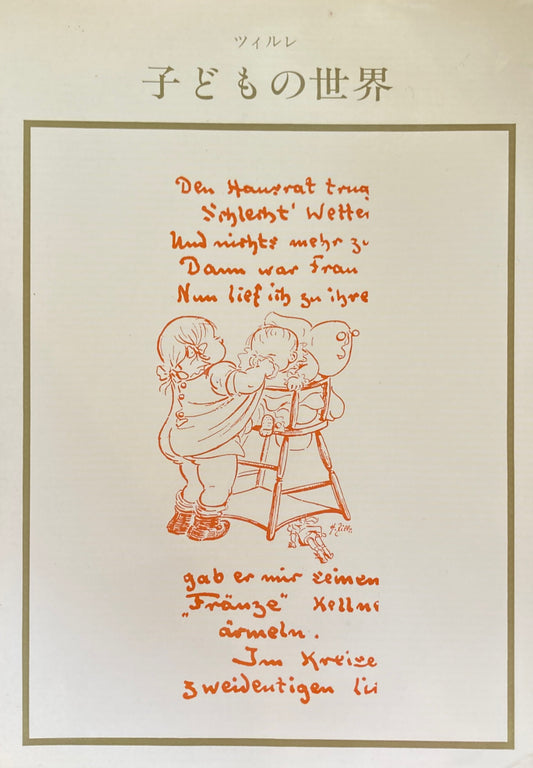 ツィルレ
子どもの世界
Den Hausrat trug
Schlecht' Wetter
Und nichts mehr zu
Dann war Frau
Nun lief ich zu ihre
H. Zille
gab er mir seinen
„Fränze“ Kellne
ärmeln.
Im Kreise
zweideutigen lie